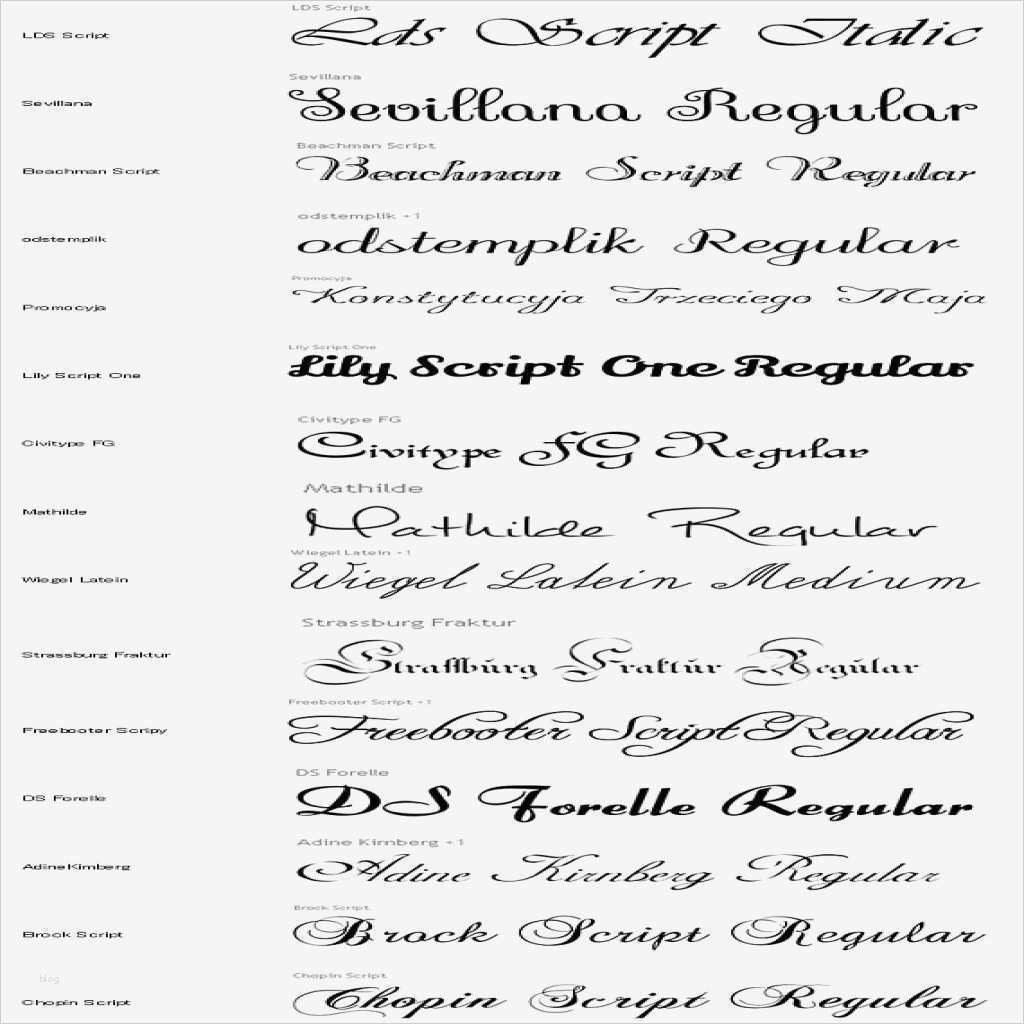 LDS Script
LDS Script
Lds Script Italic
Sevillana
Sevillana
Sevillana Regular
Beachman Script
Beachman Script
Beachman Script Regular
odstemplik +1
odstemplik
odstemplik Regular
Promocyja
Promocyja
Konstytucyja Trzeciego Maja
Lily Script One
Lily Script One
Lily Script One Regular
Civitype FG
Civitype FG
Civitype FG Regular
Mathilde
Mathilde
Mathilde Regular
Wiegel Latein +1
Wiegel Latein
Wiegel Latein Medium
Strassburg Fraktur
Strassburg Fraktur
Straſſburg Fraktur Regular
Freebooter Script +1
Freebooter Scripy
Freebooter Script Regular
DS Forelle
DS Forelle
DS Forelle Regular
Adine Kirnberg +1
AdineKirnberg
Adine Kirnberg Regular
Brock Script
Brock Script
Brock Script Regular
Chopin Script
blog
Chopin Script
Chopin Script Regular